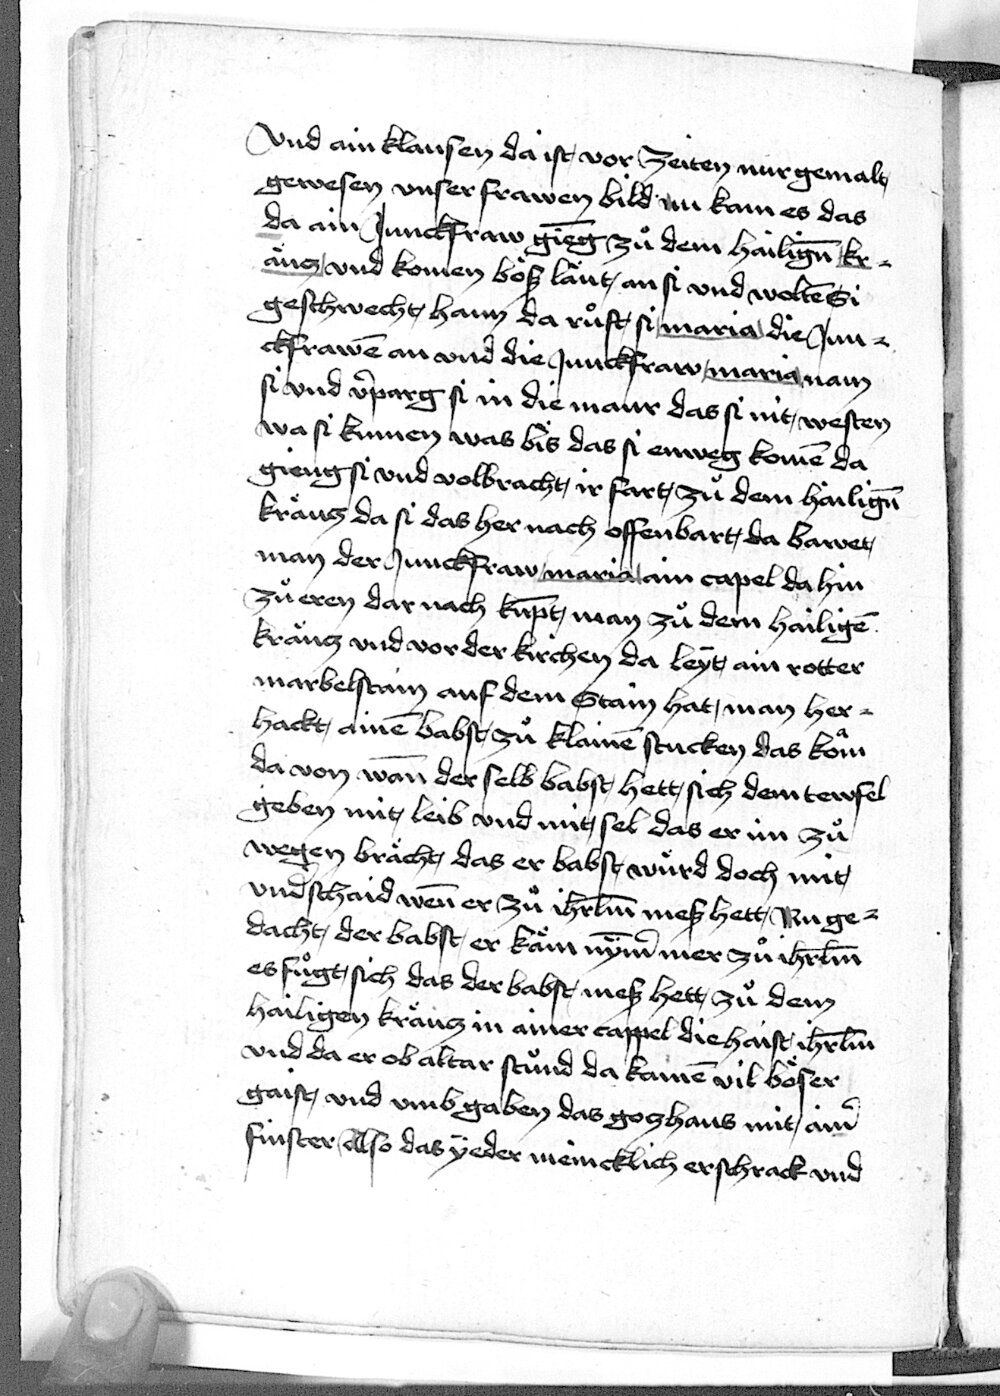 Vnd ain klausen da ist vor zeiten nur gemalt
gewesen vnser frawen bild nu kam es das
da ain Junckfraw gieng zů dem hailign̄ kr-
äucz vnd komen böß läut an si vnd wolten̄ Si
geschwecht hann da růft si maria die Jun-
ckfrawē an vnd die Junckfraw maria nam
si vnd v̄parg si in die maur das si nit westen
wa si kumen was bis das si enweg komē da
gieng si vnd volbracht ir fart zů dem hailign̄
kräucz da si das her nach offenbart da bawet
man der Junckfraw maria ain capel da hin
zů eren dar nach kūpt man zů dem hailigē
kräucz vnd vor der kirchen da leyt ain rotter
marbelstain auf dem Stain hat man her-
hackt ainē babst zů klainē stucken das kom
da von wan̄ der selb babst hett sich dem tewfel
geben mit leib vnd mit sel das er im zů
wegen brächt das er babst würd doch mit
vnd̓schaid wen̄ er zů ihrlm̄ meß hett Nu ge-
dacht der babst er käm nym̄ mer zů ihrlm̄
es fůgt sich das der babst meß hett zů dem
hailigen kräucz in ainer cappel die haist ihrlm̄
vnd da er ob altar stůnd da kamē vil böser
gaist vnd vmbgaben das goczhaus mit aim̄
finster Also das yeder meincklich erschrack vnd